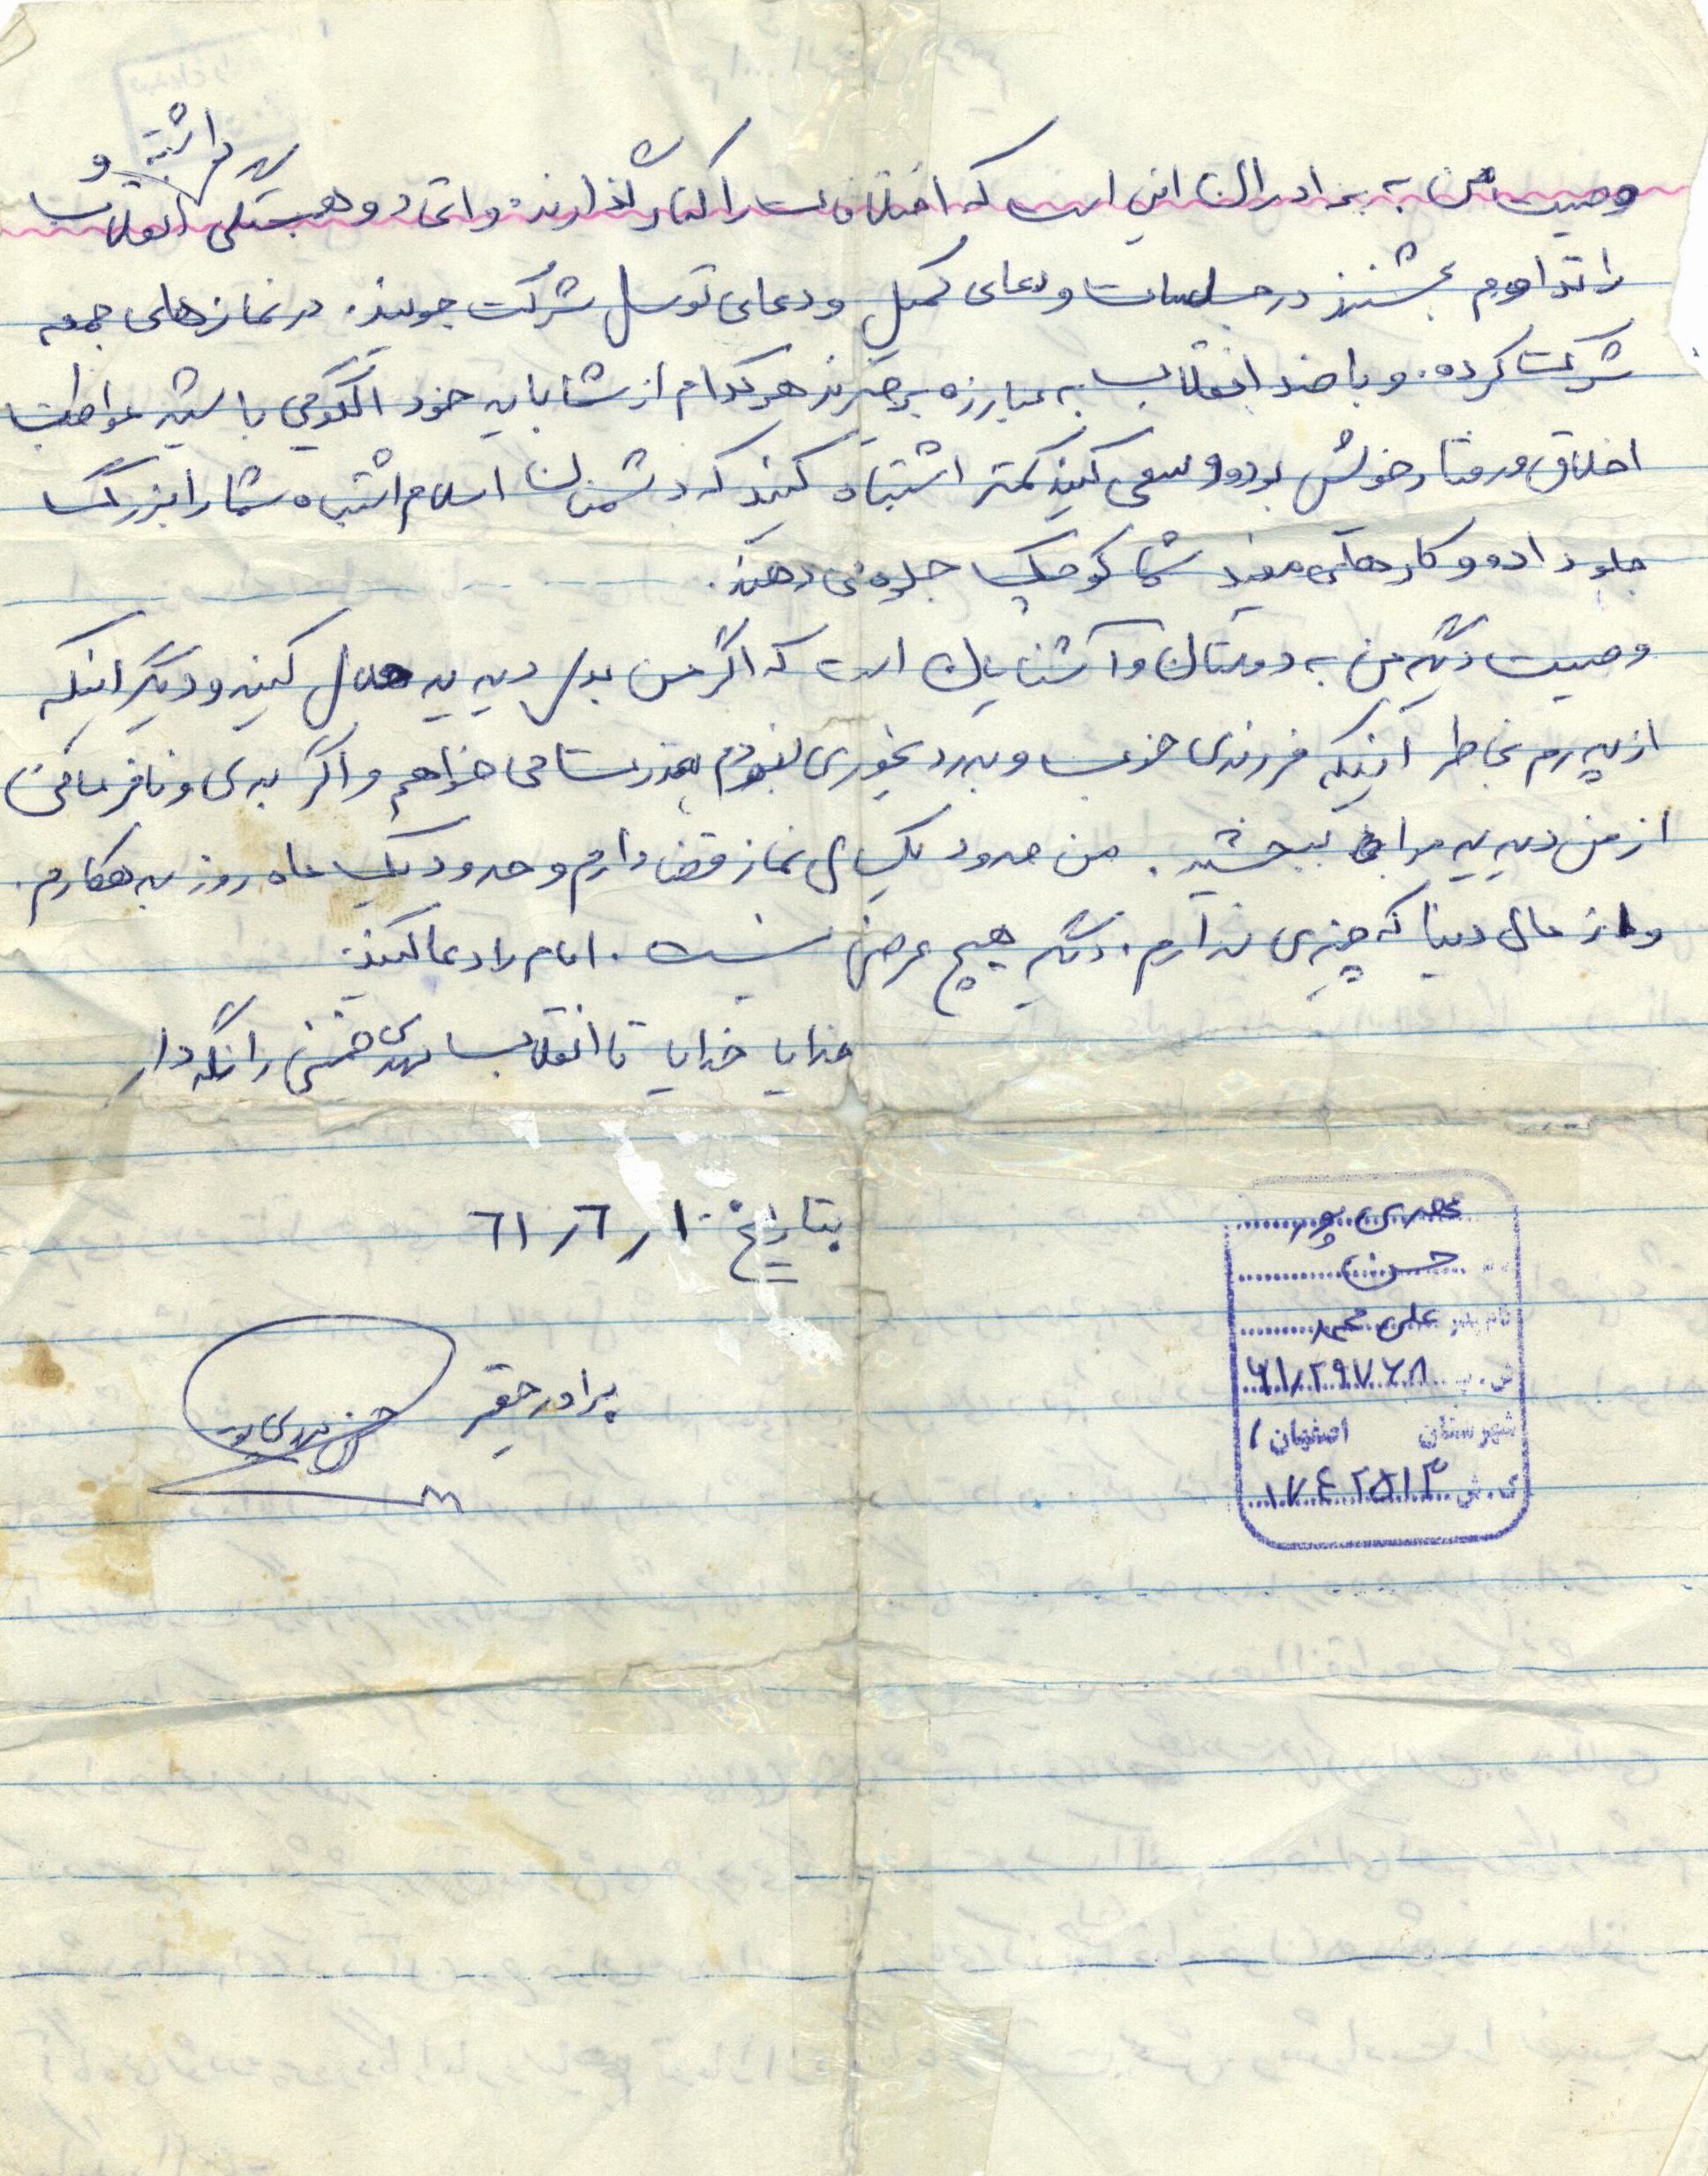 داشته و
وصیت من به برادران این است که اختلافات را کنار گذارند و اتحاد و همبستگی انقلاب
را تداوم بخشند در جلسات و دعای کمیل و دعای توسل شرکت جویند. در نمازهای جمعه
شرکت کرده. و با ضد انقلاب به مبارزه برخیزند هرکدام از شما باید خود الگویی باشید مواظب
اخلاق و رفتار خویش بوده و سعی کنید کمتر اشتباه کنید که دشمنان اسلام اشتباه شما را بزرگ
جلوه داده و کارهای مفید شما کوچک جلوه می دهند.
وصیت دیگر من به دوستان و آشنایان است که اگر من بدی دیدید حلال کنید و دیگر اینکه
از پدرم بخاطر اینکه فرزندی خوب و بدرد بخوری نبودم معذرت می خواهم و اگر بدی و نافرمانی
از من دیدید مرا ببخشید. من حدود یکسال نماز قضا دارم و حدود یک ماه روزه بدهکارم.
و از مال دنیا که چیزی ندارم. دیگر هیچ عرضی نیست. امام را دعا کنید.
خدایا خدایا تا انقلاب مهدی خمینی را نگه دار
بتاریخ ۶۱/۶/۱۰
برادر حقیر
حسن مهدی پور
مهدی پور
حسن
نام پدر علی محمد
ش. پ ۶۱/۲۹۷۶۸
شهرستان اصفهان /
ک. ش ۱۷۴۲۵۱۳